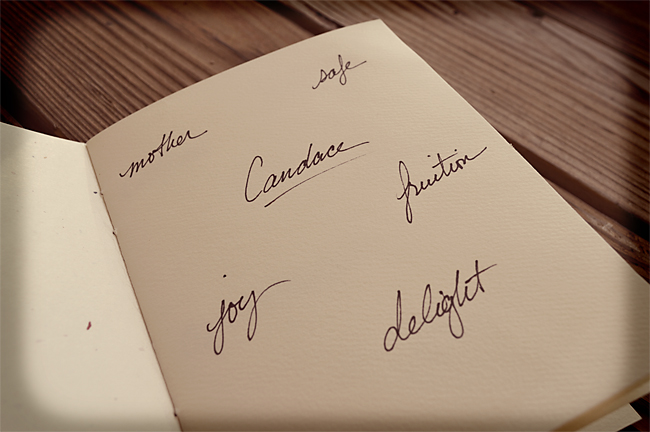 safe
mother
Candace
fruition
joy
delight